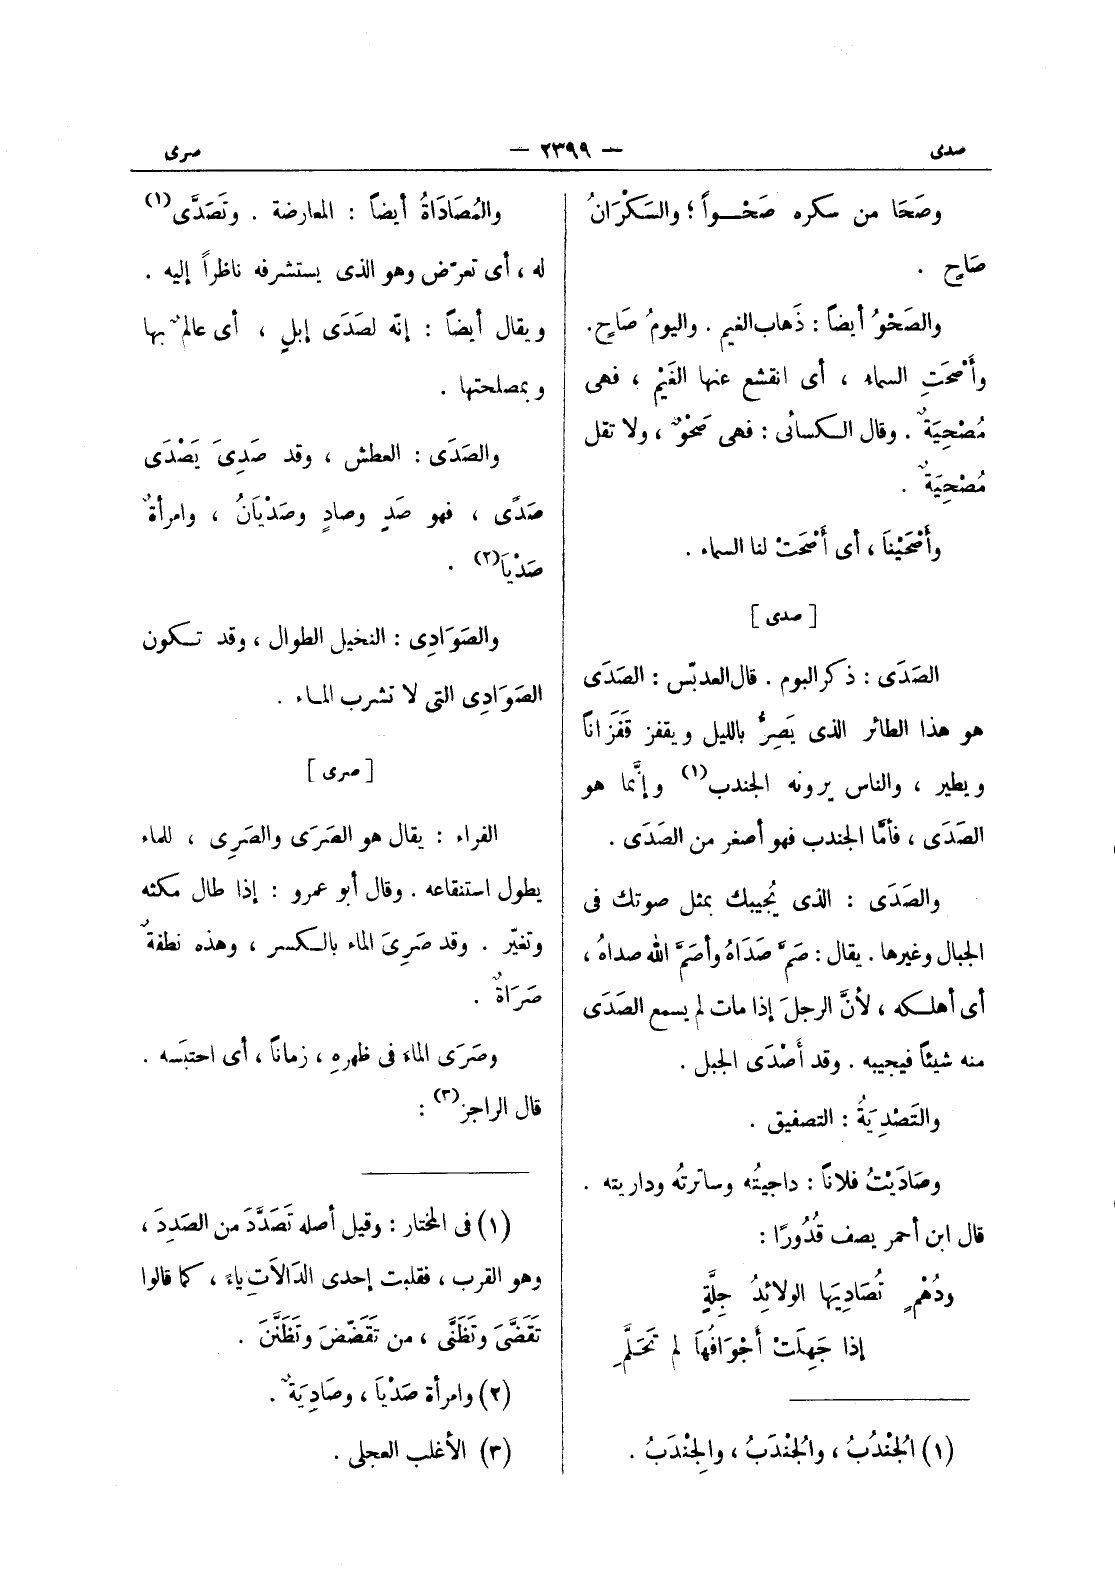 صدى
— ٢٣٩٩ —
صرى
وصَحَا من سكره صَحْـواً ؛ والسَكْرَانُ
صَاحٍ .
والصَحْوُ أيضاً : ذَهاب الغيم . واليومُ صَاحٍ .
وأَصْحَتِ السماء ، أى انقشع عنها الغَيْم ، فهى
مُصْحِيَةٌ . وقال الكسائى : فهى صَحْوٌ ، ولا تقل
مُصْحِيَةٌ .
وأَصْحَيْنَا ، أى أَصْحَتْ لنا السماء .
[ صدى ]
الصَدَى : ذكر البوم . قال العدبّس : الصَدَى
هو هذا الطائر الذى يَصِرُّ بالليل ويقفز قَفَزَاناً
ويطير ، والناس يرونه الجندب(١) وإنَّما هو
الصَدَى ، فأمَّا الجندب فهو أصغر من الصَدَى .
والصَدَى : الذى يُجيبك بمثل صوتك فى
الجبال وغيرها . يقال : صَمَّ صَدَاهُ وأصَمَّ الله صداهُ ،
أى أهلكه ، لأنَّ الرجلَ إذا مات لم يسمع الصَدَى
منه شيئاً فيجيبه . وقد أَصْدَى الجبل .
والتَصْدِيَةُ : التصفيق .
وصَادَيْتُ فلاناً : داجيتُه وساترتُه وداريته .
قال ابن أحمر يصف قُدُورًا :
ودُهْمٍ تُصَادِيهَا الولائِدُ جِلَّةٍ
إذا جَهِلَتْ أَجْوَافُهَا لم تَحَلَّمِ
(١) الجُنْدُبُ ، والجُنْدَبُ ، والجِنْدَبُ .
والمُصَادَاةُ أيضاً : المعارضة . وتَصَدَّى(١)
له ، أى تعرّض وهو الذى يستشرفه ناظراً إليه .
ويقال أيضاً : إنّه لصَدَى إبلٍ ، أى عالمٌ بها
وبمصلحتها .
والصَدَى : العطش ، وقد صَدِىَ يَصْدَى
صَدًى ، فهو صَدٍ وصادٍ وصَدْيَانُ ، وامرأةٌ
صَدْيَا(٢) .
والصَوَادِى : النخيل الطوال ، وقد تكون
الصَوَادِى التى لا تشرب الماء .
[ صرى ]
الفراء : يقال هو الصَرَى والصَرِى ، للماء
يطول استنقاعه . وقال أبو عمرو : إذا طال مكثه
وتغيّر . وقد صَرِىَ الماء بالكسر ، وهذه نطفةٌ
صَرَاةٌ .
وصَرَى الماءَ فى ظهرِهِ ، زماناً ، أى احتبَسه .
قال الراجز(٣) :
(١) فى المختار : وقيل أصله تَصَدَّدَ من الصَدِدَ ،
وهو القرب ، فقلبت إحدى الدَالاَتِ ياءً ، كما قالوا
تَقَضَّىَ وتَظَنَّى ، من تَقَضّضَ وتَظَنَّنَ .
(٢) وامرأة صَدْيَا ، وصَادِيَةٌ .
(٣) الأغلب العجلى .